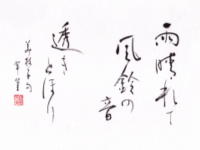 雨晴れて
風鈴の音
透きとほり